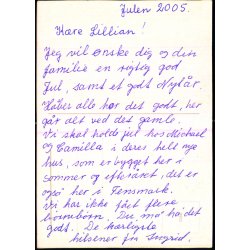 Julen 2005.
Kære Lillian!
Jeg vil ønske dig og din
familie en rigtig god
Jul, samt et godt Nytår.
Håber alle har det godt, her
går det ved det gamle.
Vi skal holde jul hos Michael
og Camilla i deres helt nye
hus, som er bygget her i
sommer og efteråret, det er
også her i Fensmark.
Vi har ikke fået flere
børnebørn. Du må ha' det
godt. De kærligste
hilsener fra Ingrid.